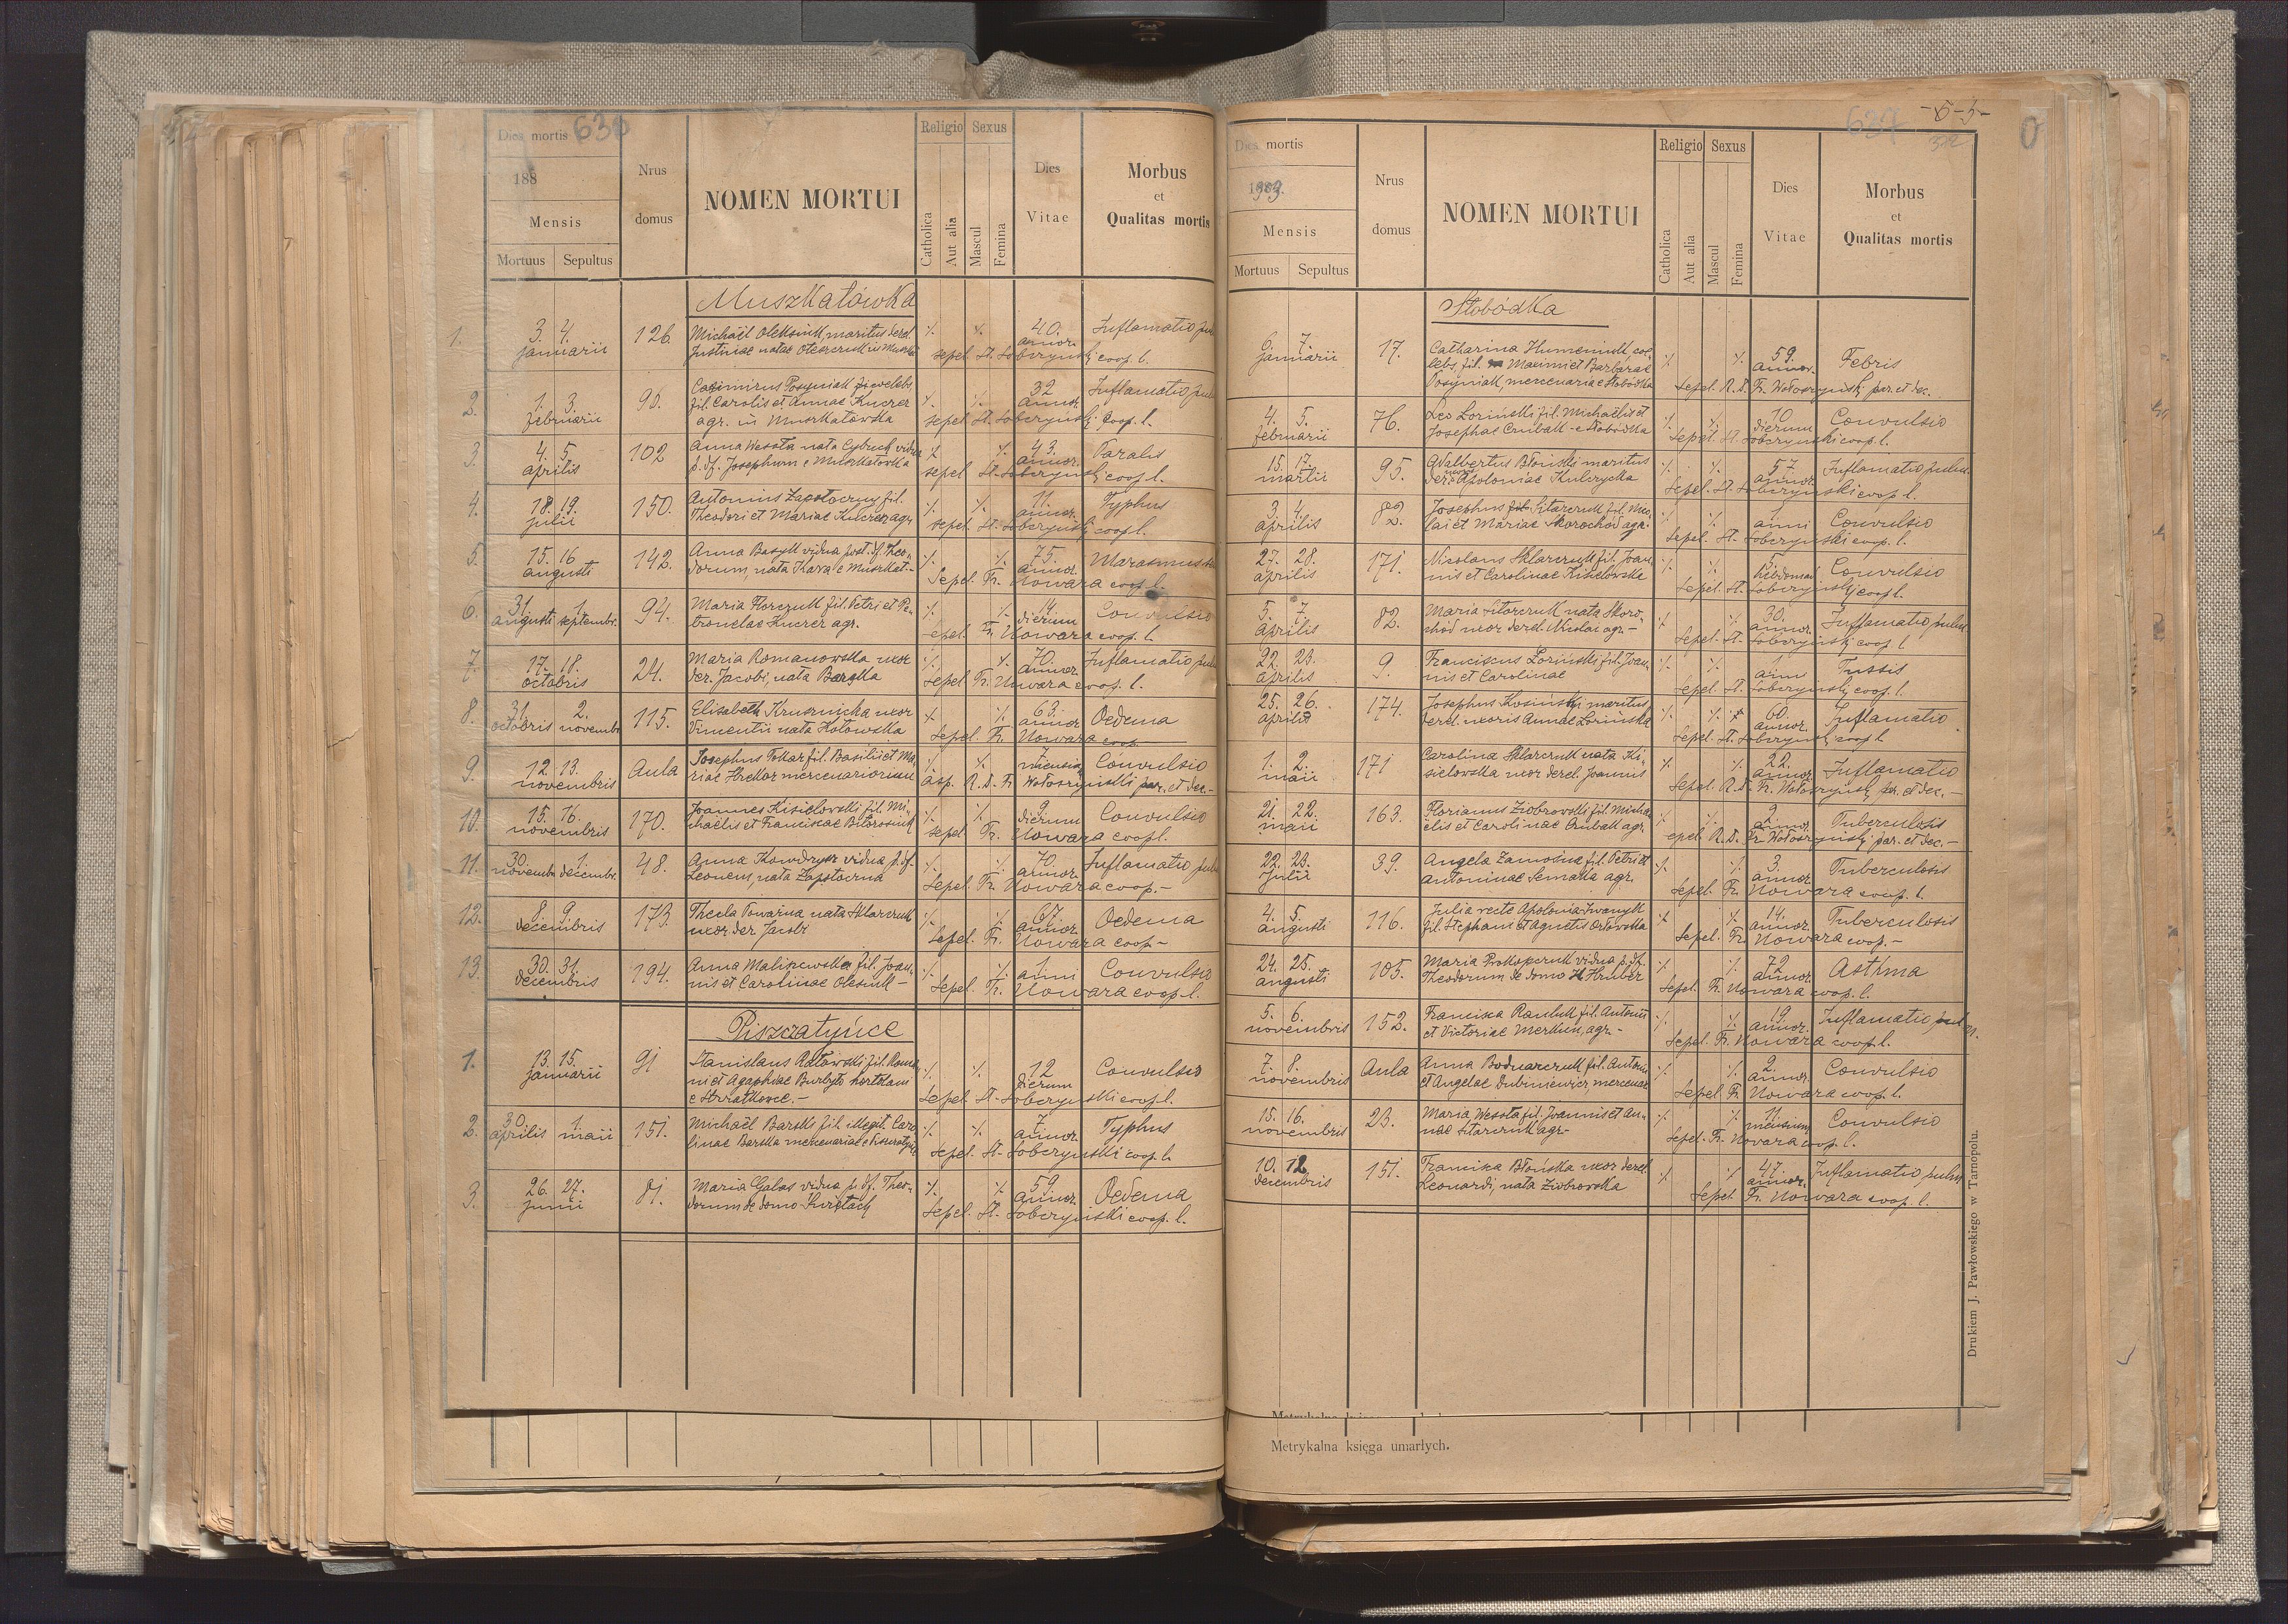 Dies mortis 630
188
Mensis
Mortuus Sepultus
Nrus domus
NOMEN MORTUI
Religio Sexus
Catholica Aut alia Mascul Femina
Dies Vitae
Morbus
et
Qualitas mortis
Muszkatówka
1. 3. 4. 126. Michaël Oleksiuk, maritus derel. % % 40. Inflamatio
januarii Justinae natae annor.
sepel. St. Soberyński coop. l.
2. 1. 3. 95. Casimirus Posyniak coelebs 32 Inflamatio
februarii fil. Caroli et Annae Kuczer % % annor.
agr. in Muszkatówka sepel. St. Soberyński coop. l.
3. 4. 5. 102 Anna Wessta nata Cybruch vidua % % 43. Paralis
aprilis p. df. Josephum e Muszkatówka annor.
sepel. St. Soberyński coop. l.
4. 18. 19. 150. Antonius Zapotoczny fil. % % 11. Typhus
julii Theodori et Mariae Kuczer agr. annor.
sepel. St. Soberyński coop. l.
5. 15. 16 142. Anna Basyk vidua post. df. Theo- % % 75. Marasmus
augusti dorum, nata Kara e Muszkat.- annor.
Sepel. Fr. Nowara coop. l.
6. 31. 1. 94. Maria Florczuk fil. Petri et Pe- % % 14. Convulsio
augusti septembr. tronelae Kuczer agr. dierum
sepel. Fr. Nowara coop. l.
7. 17. 18. 24. Maria Romanowska uxor % % 70. Inflamatio
octobris der. Jacobi, nata annor.
sepel. Fr. Nowara coop. l.
8. 31. 2. 115. Elisabeth Krusznicka uxor % % 63. Oedema
octobris novembr. Vincentii nata Kotowska annor.
Sepel. Fr. Nowara coop.
9. 12. 13. Aula Josephus Tokar fil. Basilii et Ma- % % 7 Convulsio
novembris riae mercenariorum mensium
R. D. Fr. Wołoszyński par. et dec.-
10. 15. 16. 170. Joannes Kisielowski fil. Mi- % % 9 Convulsio
novembris chaëlis et Franciscae dierum
sepel. Fr. Nowara coop. l.
11. 30. 1. 48. Anna Kowdrysz vidua p. df. % % 70. Inflamatio
novembr. decembr. Leonem, nata Zapotoczna annor.
Sepel. Fr. Nowara coop.-
12. 8. 9. 173. Thecla Powazna nata Sklarczuk % % 67. Oedema
decembris uxor der. Jacobi annor.
Sepel. Fr. Nowara coop.-
13. 30. 31. 194. Anna Malinowska fil. Joan- % % 1 Convulsio
decembris nis et Carolinae Olesiuk - anni
Sepel. Fr. Nowara coop. l.
Piszczatyńce
1. 13. 15. 91 Stanislaus Ratowski fil. Roma- % % 12 Convulsio
januarii ni et Agaphiae Burbyło hortolani dierum
e Strzałkowce.- Sepel. St. Soberyński coop. l.
2. 30. 1. 151. Michaël Barski fil. illegit. Caro- % % 7. Typhus
aprilis maii linae Barska mercenariae e annor.
sepel. St. Soberyński coop. l.
3. 26. 27. 81. Maria Galas vidua p. df. Theo- % % 59. Oedema
junii dorum de domo annor.
Sepel. St. Soberyński coop. l.
637 -5-5-
Dies mortis
Mensis
Mortuus Sepultus
Nrus domus
NOMEN MORTUI
Religio Sexus
Catholica Aut alia Mascul Femina
Dies Vitae
Morbus
et
Qualitas mortis
Słobódka
6. 7. 17. Catharina Humeniuk coe- % % 59. Febris
januarii lebs, fil. Maximi et Barbarae annor.
Posyniak, mercenaria e Słobódka Sepel. R. D. Fr. Wołoszyński par. et dec.
4. 5. 76. Leo Loziński fil. Michaëlis et % % 10 Convulsio
februarii Josephae Czubak e Słobódka dierum
Sepel. St. Soberyński coop. l.
15. 17. 95. Adalbertus Błoński maritus % % 57 Inflamatio pulm.
martii der. uxoris Apoloniae Kulczycka annor.
Sepel. St. Soberyński coop. l.
3. 4. 82. Josephus Sitarczuk fil. Nico- % % 1 Convulsio
aprilis lai et Mariae Skorochód agr. anni
Sepel. St. Soberyński coop. l.
27. 28. 171. Nicolaus Sklarczuk fil. Joan- % % 5 Convulsio
aprilis nis et Carolinae Kisielowska hebdomad.
Sepel. St. Soberyński coop. l.
5. 7. 82. Maria Sitarczuk nata Skoro- % % 30. Inflamatio pulm.
aprilis chód uxor derel. Nicolai agr.- annor.
Sepel. St. Soberyński coop. l
22. 23. 9. Franciscus Loziński fil. Joan- % % 1 Tussis
aprilis nis et Carolinae anni
Sepel. St. Soberyński coop. l.
25. 26. 174. Josephus Kosiński maritus % % 60. Inflamatio
aprilis derel. uxoris Annae Lozińska annor.
Sepel. St. Soberyński coop. l.
1. 2. 171 Carolina Sklarczuk nata Ki- % % 22. Inflamatio
maii sielowska uxor derel. Joannis annor.
Sepel. R. D. Fr. Wołoszyński par. et dec.-
21. 22. 163. Florianus Ziobrowski fil. Micha- % % 2 Tuberculosis
maii ëlis et Carolinae Czubak agr. annor.
epel. R. D. Fr. Wołoszyński par. et dec.-
22. 23. 39. Angela Zamośna fil. Petri et % % 3. Tuberculosis
julii Antoninae Semaka agr. annor.
Sepel. Fr. Nowara coop. l.
4. 5. 116. Julia recte Apolonia Iwanyk % % 14. Tuberculosis
augusti fil. Stephani et Agnetis Orłowska annor.
Sepel. Fr. Nowara coop.-
24. 25. 105. Maria Prokopczuk vidua p. df. % % 72 Asthma
augusti Theodorum de domo Hruber annor.
Sepel. Fr. Nowara coop. l.
5. 6. 152. Franciska fil. Antonii % % 19. Inflamatio pulm.
novembris et Victoriae Merkun, agr.- annor.
Sepel. Fr. Nowara coop. l.
7. 8. Aula Anna Bodnarczuk fil. Antonii % % 2. Convulsio
novembris et Angelae Dubiniewicz, mercenar. annor.
Sepel Fr. Nowara coop. l.
15. 16. 23. Maria Wessta fil. Joannis et An- % % 11 Convulsio
novembris nae Sitarczuk agr- mensium
Sepel. Fr. Nowara coop. l.
10. 12 151. Franciska Błońska uxor derel. % % 47. Inflamatio pulm
decembris Leonardi, nata Ziobrowska annor.
Sepel. Fr. Nowara coop. l.
Drukiem J. Pawłowskiego w Tarnopolu.
Metrykalna księga umarłych.